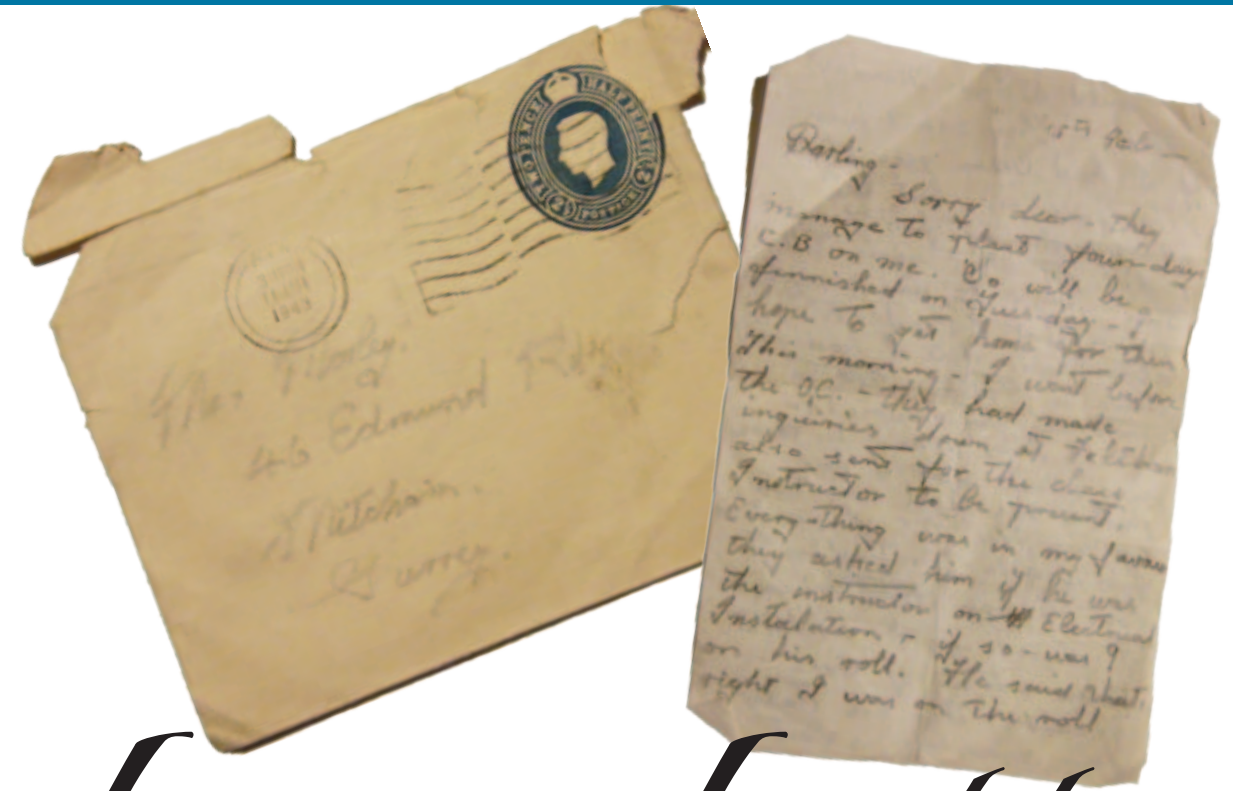 TWO PENCE HALF PENNY
POSTAGE
46 Edmund
Mitcham.
Surrey.
Darling.
Sorry dear, they
manage to plant four days
C.B on me. So will be
finnished on Tuesday - I
hope to get home for then
This morning - I went before
the O.C. - they had made
inquiries down at
also sent for the class
Instructor to be present.
Everything was in my favour
they asked him if he was
the instructor on Electrical
Instalation - if so - was I
on his roll. He said that.
right I was on the roll